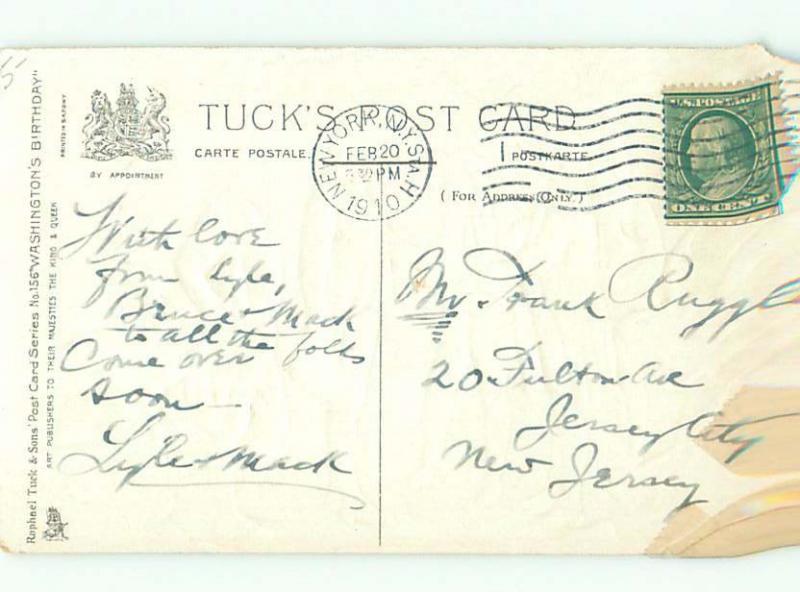 5-
Raphael Tuck & Sons' Post Card Series No. 156 "WASHINGTON'S BIRTHDAY"
ART PUBLISHERS TO THEIR MAJESTIES THE KING & QUEEN
PRINTED IN SAXONY
BY APPOINTMENT
TUCK'S POST CARD
CARTE POSTALE.
POSTKARTE
( FOR ADDRESS ONLY. )
NEW YORK, N.Y. STA. H
FEB 20
30 PM
1910
1
U.S. POSTAGE
ONE CENT
With love
from Lyle,
Bruce + Mack
to all the folks
Come over
soon —
Lyle + Mack
Mr. Frank
20 Fulton Ave
Jersey City
New Jersey